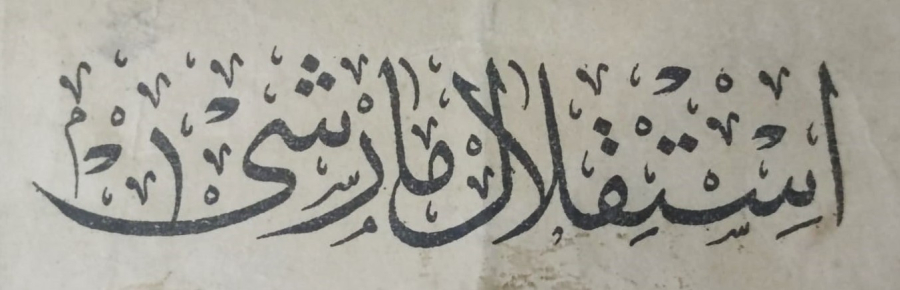 استقلال مارشى